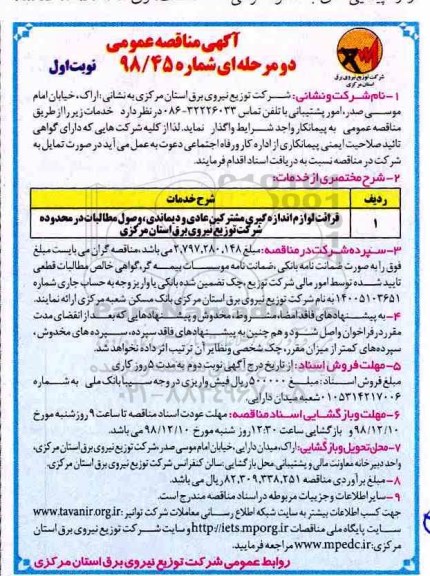 آگهی مناقصه عمومی
دو مرحله ای شماره ۹۸/۴۵
نوبت اول
شرکت توزیع نیروی برق
استان مرکزی
۱- نام شرکت و نشانی: شرکت توزیع نیروی برق استان مرکزی به نشانی: اراک، خیابان امام
موسی صدر، امور پشتیبانی با تلفن تماس ۳۲۲۲۶۰۳۳-۰۸۶ در نظر دارد خدمات زیر را از طریق
مناقصه عمومی به پیمانکار واجد شرایط واگذار نماید. لذا از کلیه شرکت هایی که دارای گواهی
تائید صلاحیت ایمنی پیمانکاری از اداره کار و رفاه اجتماعی دعوت به عمل می آید در صورت تمایل به
شرکت در مناقصه نسبت به دریافت اسناد اقدام فرمایند.
۲- شرح مختصری از خدمات:
ردیف شرح خدمات
۱ قرائت لوازم اندازه گیری مشترکین عادی و دیماندی، وصول مطالبات در محدوده
شرکت توزیع نیروی برق استان مرکزی
۳- سپرده شرکت در مناقصه: مبلغ ۳,۷۹۷,۲۸۰,۱۴۸ می باشد، مناقصه گران می بایست مبلغ
فوق را به صورت ضمانت نامه بانکی، ضمانت نامه موسسات بیمه گر، گواهی خالص مطالبات قطعی
تایید شده توسط امور مالی شرکت توزیع، چک تضمین شده بانکی یا واریز وجه به حساب جاری شماره
۱۴۰۰۵۱۰۳۶۵۱ به نام شرکت توزیع نیروی برق استان مرکزی بانک مسکن شعبه مرکزی ارائه نمایند.
۴- به پیشنهادهای فاقد امضاء، مشروط، مخدوش و پیشنهادهایی که بعد از انقضای مدت
مقرر در فراخوان واصل شود و هم چنین به پیشنهادهای فاقد سپرده، سپرده های مخدوش،
سپرده های کمتر از میزان مقرر، چک شخصی و نظایر آن ترتیب اثر داده نخواهد شد.
۵- مهلت فروش اسناد: از تاریخ درج آگهی نوبت دوم به مدت ۵ روز کاری
مبلغ فروش اسناد: مبلغ ۵۰۰۰۰۰ ریال فیش واریزی در وجه سیبا بانک ملی به شماره
۰۱۰۵۳۱۴۲۱۷۰۰۶ شعبه میدان دارایی.
۶- مهلت و بازگشایی اسناد مناقصه: مهلت عودت اسناد مناقصه تا ساعت ۹ روز شنبه مورخ
۹۸/۱۲/۱۰ و بازگشایی ساعت ۱۲:۳۰ روز شنبه مورخ ۹۸/۱۲/۱۰ می باشد.
۷- محل تحویل و بازگشایی: اراک، میدان دارایی، خیابان امام موسی صدر، شرکت توزیع نیروی برق استان مرکزی،
واحد دبیرخانه معاونت مالی و پشتیبانی محل بازگشایی: سالن کنفرانس شرکت توزیع نیروی برق استان مرکزی.
۸- مبلغ برآوردی مناقصه ۸۲,۳۰۹,۳۳۸,۲۵۱ ریال می باشد.
۹- سایر اطلاعات و جزییات مربوطه در اسناد مناقصه مندرج است.
جهت کسب اطلاعات بیشتر به سایت شبکه اطلاع رسانی معاملات شرکت توانیر: www.tavanir.org.ir
سایت پایگاه ملی مناقصات http://iets.mporg.ir و سایت شرکت توزیع نیروی برق استان
مرکزی: www.mpedc.ir مراجعه فرمایید.
روابط عمومی شرکت توزیع نیروی برق استان مرکزی